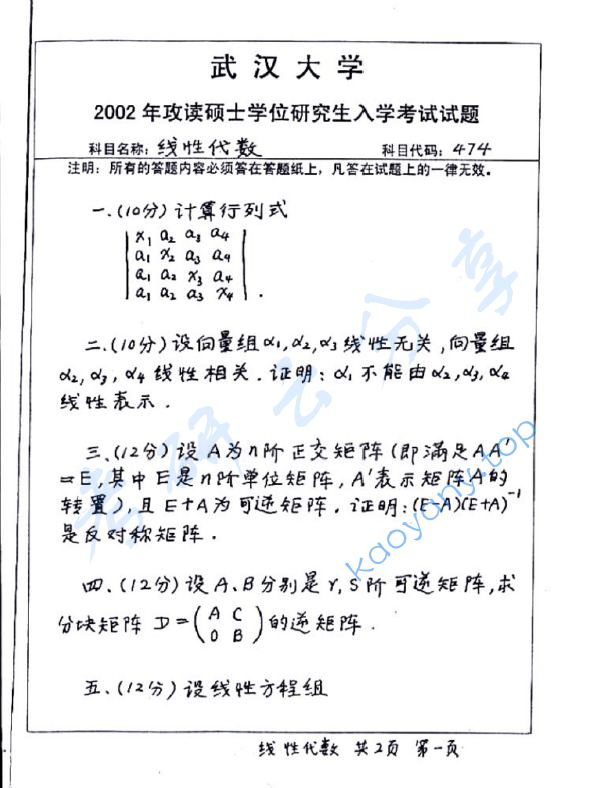 武汉大学
2002年攻读硕士学位研究生入学考试试题
科目名称: 线性代数 科目代码: 474
注明: 所有的答题内容必须答在答题纸上, 凡答在试题上的一律无效。
一.(10分) 计算行列式
| x₁ a₂ a₃ a₄ |
| a₁ x₂ a₃ a₄ |
| a₁ a₂ x₃ a₄ |
| a₁ a₂ a₃ x₄ | .
二.(10分) 设向量组α₁,α₂,α₃线性无关,向量组
α₂,α₃,α₄线性相关.证明:α₁不能由α₂,α₃,α₄
线性表示.
三.(12分) 设A为n阶正交矩阵(即满足AA′
=E,其中E是n阶单位矩阵,A′表示矩阵A的
转置),且E+A为可逆矩阵.证明:(E-A)(E+A)⁻¹
是反对称矩阵.
四.(12分) 设A、B分别是r,s阶可逆矩阵,求
分块矩阵 D=(A C
0 B)的逆矩阵.
五.(12分) 设线性方程组
线性代数 共2页 第一页
考研云分享
kaoyany.top